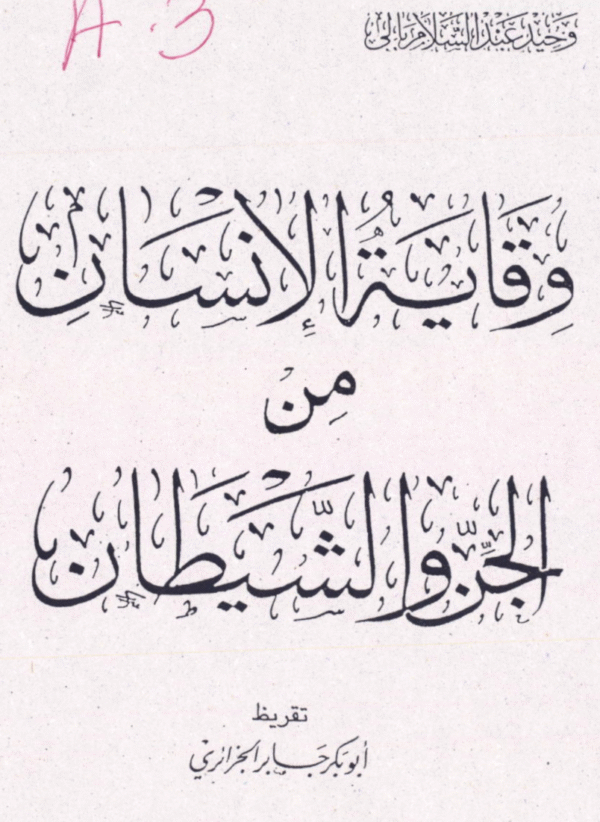 A.3
وحيد عبد السلام بالي
وِقَايَةُ الإِنْسَانِ
مِنْ
الجِنِّ والشَّيطَان
تقريظ
أبو بكر جابر الجزائري